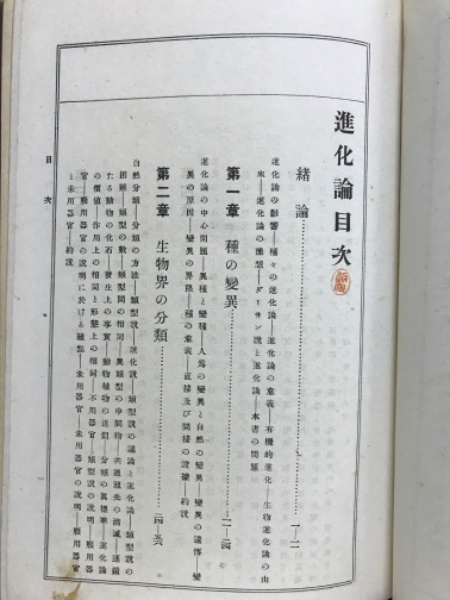 進化論目次
緒論
進化論の影響―種々の進化論―進化論の意義―有機的進化―生物進化論の由
来―進化論の ―ダーヰン說と進化論―本書の問題
第一章 種の變異
進化論の中心問題―異種と變種―人爲の變異と自然の變異―變異の遺傳―變
異の原因―變異の界限―種の意義―直接及び間接の證據―約說
第二章 生物界の分類
自然分類―分類の方法―類型說―進化說―類型說の議論と進化論―類型說の
困難―類型の數―類型間の相同―異類型の中間物―共通祖先の消滅―連鎖
たる動物の化石―發生上の事實―動物植物の近似―分類の眞標準―進化論
の價値―作用上の相同と形態上の相同―不用器官―類型說の說明―應用器
官―應用器官の說明に於ける難點―未用器官―未用器官の說明―應用器官
と未用器官―約說
目次